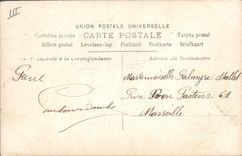 III
UNION POSTALE UNIVERSELLE
CARTE POSTALE
Tarjeta postal
Billete postal Levelező-lap Postcard Postkarte Briefkaart
Correspondance
Adresse du Destinataire
Paul
Mademoiselle Palmyre Mallet
Rue Bon Pasteur 61
Marseille